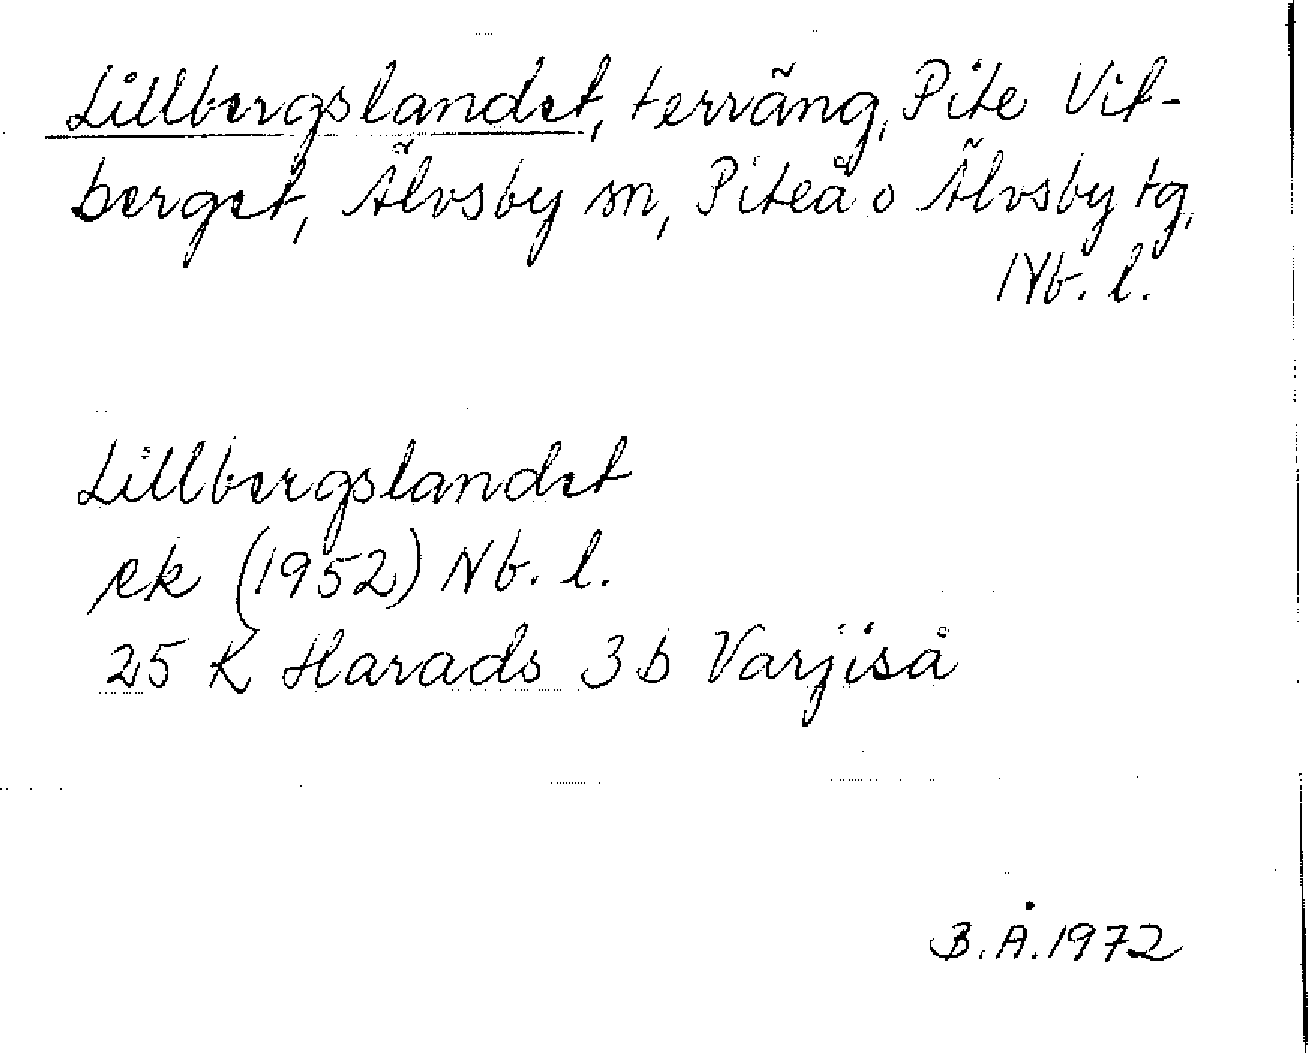 Lillbergslandet, terräng, Pite Vit-
berget, Älvsby sn, Piteå o Älvsby tg,
Nb. l.
Lillbergslandet
ek (1952) Nb. l.
25 K Harads 3b Varjiså
B.Å.1972